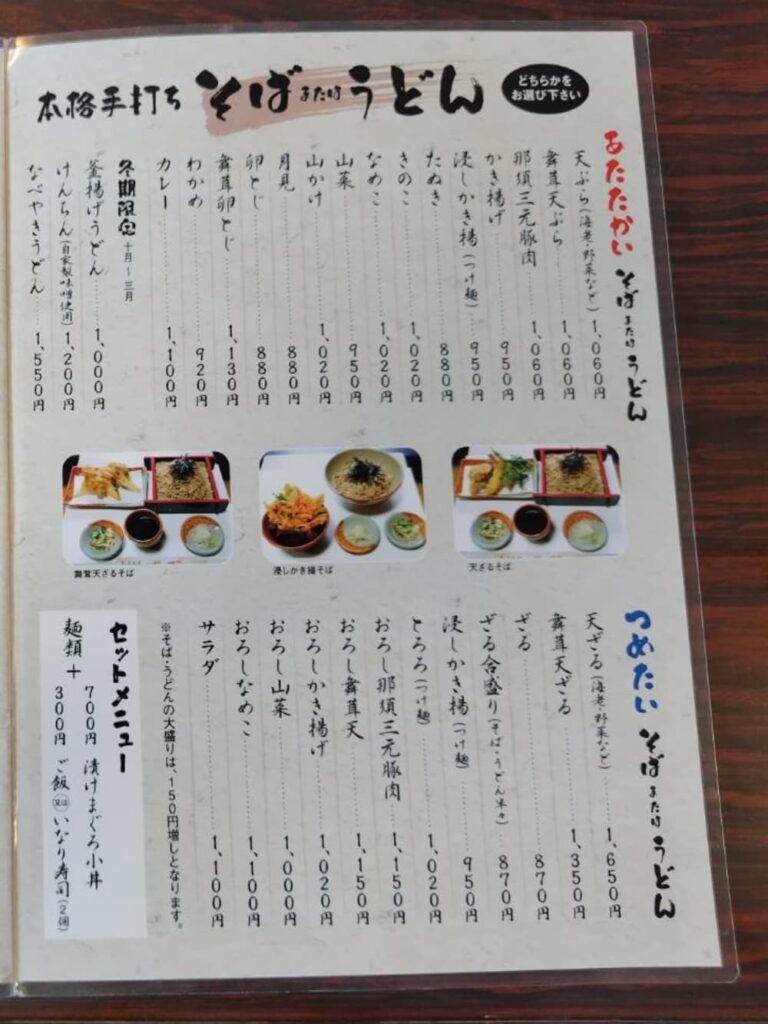 本格手打ち そば または うどん
どちらかを
お選び下さい
あたたかい そば または うどん
天ぷら(海老・野菜など) 1,060円
舞茸天ぷら 1,060円
那須三元豚肉 1,060円
かき揚げ 950円
浸しかき揚(つけ麺) 950円
たぬき 880円
きのこ 1,020円
なめこ 1,020円
山菜 950円
山かけ 1,020円
月見 880円
卵とじ 880円
舞茸卵とじ 1,130円
わかめ 920円
カレー 1,100円
冬期限定 十月~三月
釜揚げうどん 1,000円
けんちん(自家製味噌使用) 1,200円
なべやきうどん 1,550円
舞茸天ざるそば
浸しかき揚そば
天ざるそば
つめたい そば または うどん
天ざる(海老・野菜など) 1,650円
舞茸天ざる 1,350円
ざる 870円
ざる合盛り(そば・うどん半々) 870円
浸しかき揚(つけ麺) 950円
とろろ(つけ麺) 1,020円
おろし那須三元豚肉 1,150円
おろし舞茸天 1,150円
おろしかき揚げ 1,020円
おろし山菜 1,000円
おろしなめこ 1,100円
サラダ 1,100円
※そば・うどんの大盛りは、150円増しとなります。
セットメニュー
麺類+
700円 漬けまぐろ小丼
300円 ご飯又はいなり寿司(2個)